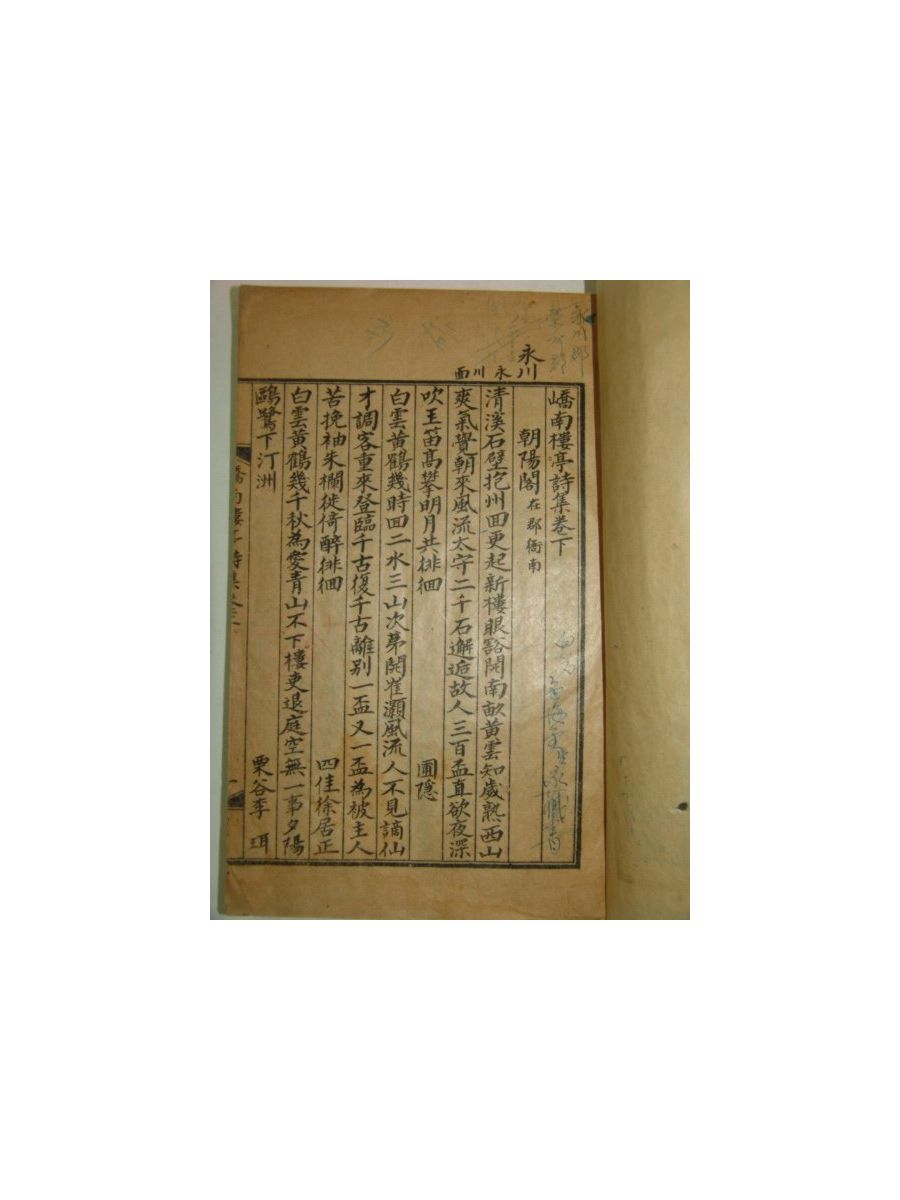 永川郡
永川
永川面
嶠南樓亭詩集卷下
朝陽閣 在郡衙南
清溪石壁抱州回更起新樓眼豁開南畝黃雲知歲熟西山
爽氣覺朝來風流太守二千石邂逅故人三百盃直欲夜深
吹玉笛高攀明月共徘徊 圃隱
白雲黃鶴幾時回二水三山次第開崔灝風流人不見謫仙
才調客重來登臨千古復千古離別一盃又一盃為被主人
苦挽袖朱欄徙倚醉徘徊 四佳徐居正
白雲黃鶴幾千秋為愛青山不下樓吏退庭空無一事夕陽
鷗鷺下汀洲 栗谷李珥